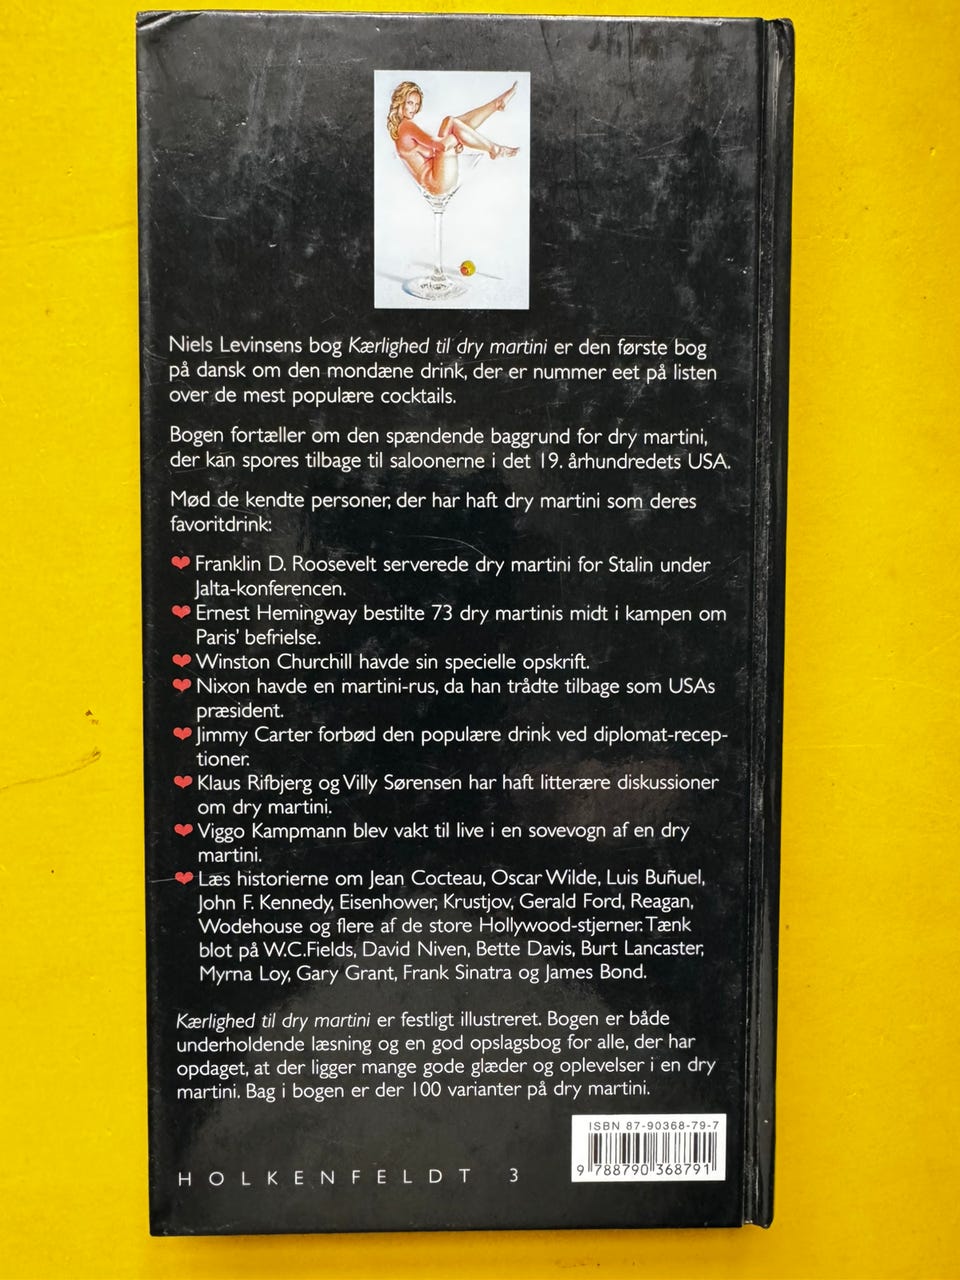 Niels Levinsens bog Kærlighed til dry martini er den første bog
på dansk om den mondæne drink, der er nummer eet på listen
over de mest populære cocktails.
Bogen fortæller om den spændende baggrund for dry martini,
der kan spores tilbage til saloonerne i det 19. århundredets USA.
Mød de kendte personer, der har haft dry martini som deres
favoritdrink:
❤ Franklin D. Roosevelt serverede dry martini for Stalin under
Jalta-konferencen.
❤ Ernest Hemingway bestilte 73 dry martinis midt i kampen om
Paris' befrielse.
❤ Winston Churchill havde sin specielle opskrift.
❤ Nixon havde en martini-rus, da han trådte tilbage som USAs
præsident.
❤ Jimmy Carter forbød den populære drink ved diplomat-recep-
tioner.
❤ Klaus Rifbjerg og Villy Sørensen har haft litterære diskussioner
om dry martini.
❤ Viggo Kampmann blev vakt til live i en sovevogn af en dry
martini.
❤ Læs historierne om Jean Cocteau, Oscar Wilde, Luis Buñuel,
John F. Kennedy, Eisenhower, Krustjov, Gerald Ford, Reagan,
Wodehouse og flere af de store Hollywood-stjerner. Tænk
blot på W.C.Fields, David Niven, Bette Davis, Burt Lancaster,
Myrna Loy, Gary Grant, Frank Sinatra og James Bond.
Kærlighed til dry martini er festligt illustreret. Bogen er både
underholdende læsning og en god opslagsbog for alle, der har
opdaget, at der ligger mange gode glæder og oplevelser i en dry
martini. Bag i bogen er der 100 varianter på dry martini.
ISBN 87-90368-79-7
9 788790 368791
HOLKENFELDT 3